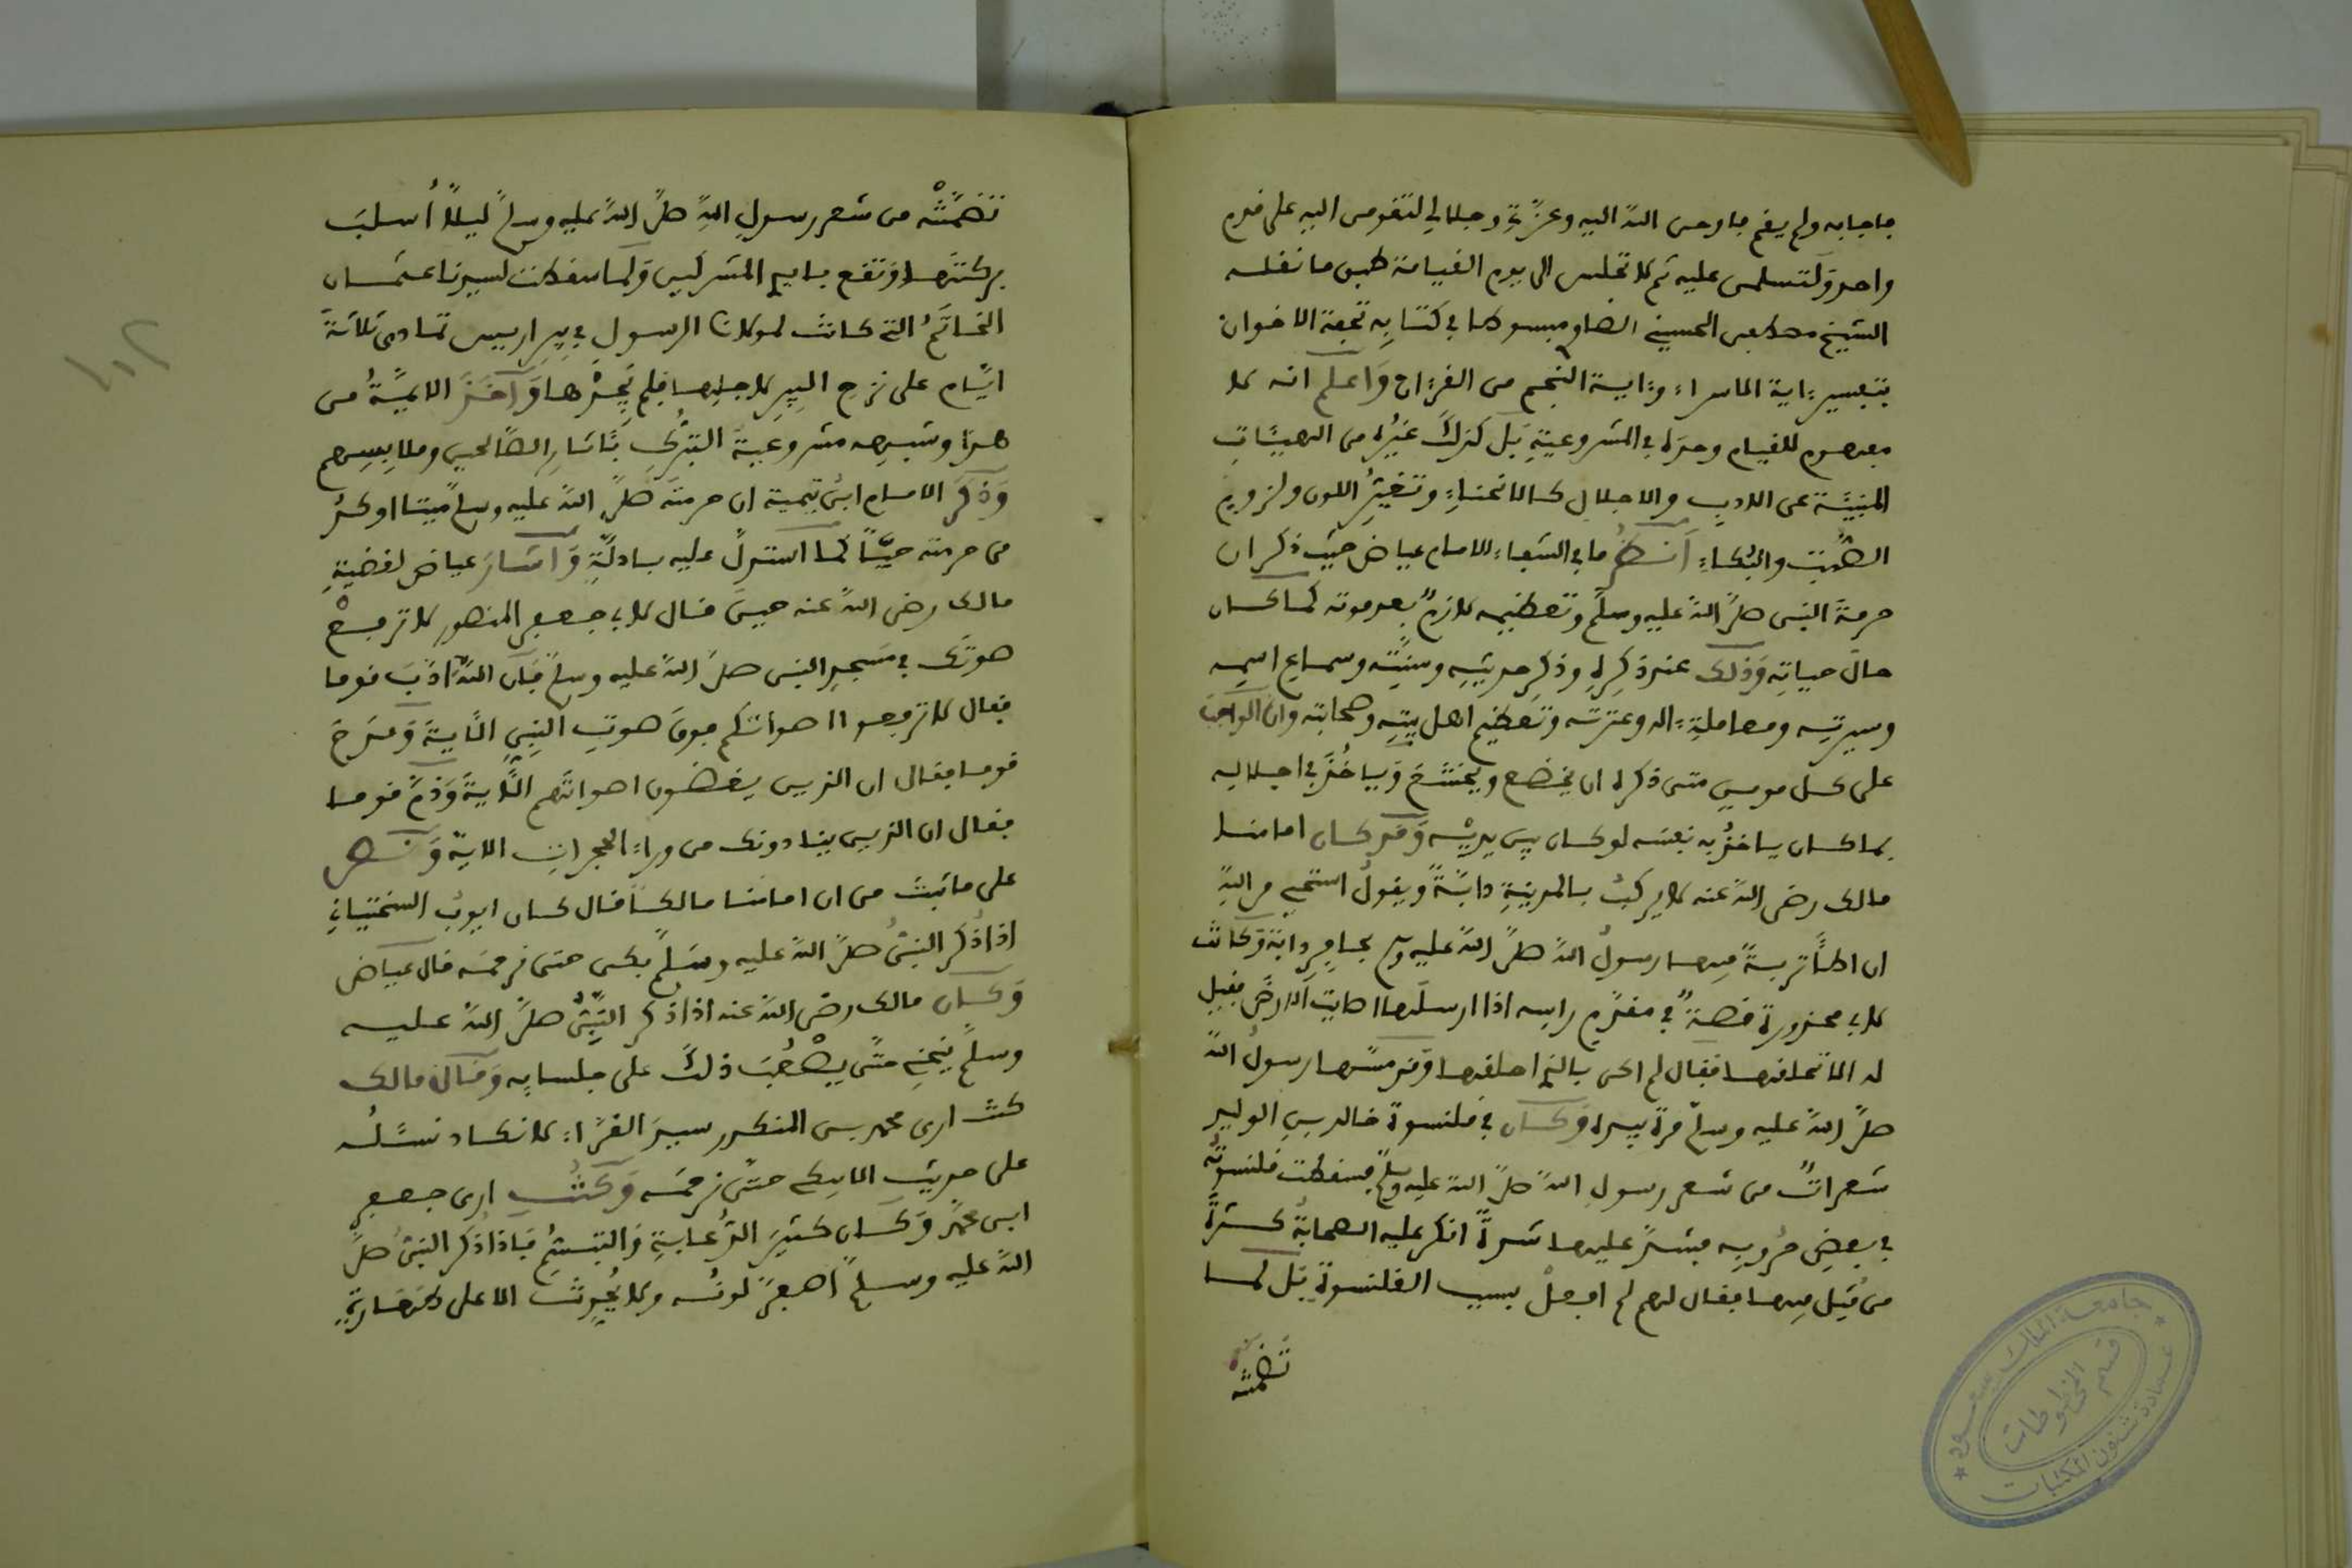 فاجابه ولم يقم فاوحى الله اليه وعزتي وجلالي لتقومن اليه على قدم
واحد ولتسلمن عليه ثم لا تجلس الى يوم القيامة طبق ما نقله
الشيخ مصطفى الحسيني الصاوي مبسوطا في كتابه تحفة الاخوان
بتفسير ءاية الاسراء وءاية النجم من القرءان واعلم انه لا
مفهوم للقيام وحده في المشروعية بل كذلك غيره من الهيئات
المنبئة عن الادب والاجلال كالانحناء وتغير اللون ولزوم
الصمت والبكاء انظر ما في الشفاء للامام عياض حيث ذكر ان
حرمة النبي صلى الله عليه وسلم وتعظيمه لازم بعد موته كما كان
حال حياته وذلك عند ذكره وذكر حديثه وسنته وسماع اسمه
وسيرته ومعاملة ءاله وعترته وتعظيم اهل بيته وصحابته وان الواجب
على كل مومن متى ذكره ان يخضع ويخشع وياخذ في اجلاله
بما كان ياخذ به نفسه لو كان بين يديه وقد كان امامنا
مالك رضي الله عنه لا يركب بالمدينة دابة ويقول استحي من الله
ان اطأ تربة فيها رسول الله صلى الله عليه وسلم بحافر دابة وكانت
لابي محذورة قصة في مقدم راسه اذا ارسلها اصابت الارض فقيل
له الا تحلقها فقال لم اكن بالذي احلقها وقد مسها رسول الله
صلى الله عليه وسلم مرة بيده وكان في قلنسوة خالد بن الوليد
شعرات من شعر رسول الله صلى الله عليه وسلم فسقطت قلنسوته
في بعض حروبه فشد عليها شدة انكر عليه الصحابة كثرة
من قتل فيها فقال لهم لم افعل بسبب القلنسوة بل لما
تضمنته
تضمنته من شعر رسول الله صلى الله عليه وسلم ليلا اسلب
بركتها وتقع بايدي المشركين ولما سقطت لسيدنا عثمان
الخاتم التي كانت لمولانا الرسول في بير اريس تمادى ثلاثة
ايام على نزح البير لاجلها فلم يجدها واخذ الايمة من
هذا وشبهه مشروعية التبرك بئاثار الصالحين وملابسهم
وذكر الامام ابن تيمية ان حرمته صلى الله عليه وسلم ميتا اوكد
من حرمته حيا كما استدل عليه بادلة واشار عياض لقضية
مالك رضي الله عنه حين قال لابي جعفر المنصور لا ترفع
صوتك في مسجد النبي صلى الله عليه وسلم فان الله ادب قوما
فقال لا ترفعوا اصواتكم فوق صوت النبي الاية ومدح
قوما فقال ان الذين يغضون اصواتهم الاية وذم قوما
فقال ان الذين ينادونك من وراء الحجرات الاية ونص
على ما ثبت من ان امامنا مالكا قال كان ايوب السختياني
اذا ذكر النبي صلى الله عليه وسلم بكى حتى نرحمه قال عياض
وكان مالك رضي الله عنه اذا ذكر النبي صلى الله عليه
وسلم ينحني حتى يصعب ذلك على جلسايه وقال مالك
كنت ارى محمد بن المنكدر سيد القراء لا نكاد نسئله
على حديث الا بكى حتى نرحمه وكنت ارى جعفر
ابن محمد وكان كثير الدعابة والتبسم فاذا ذكر النبي صلى
الله عليه وسلم اصفر لونه ولا يحدث الا على طهارة
جامعة الملك سعود
قسم المخطوطات
عمادة شئون المكتبات